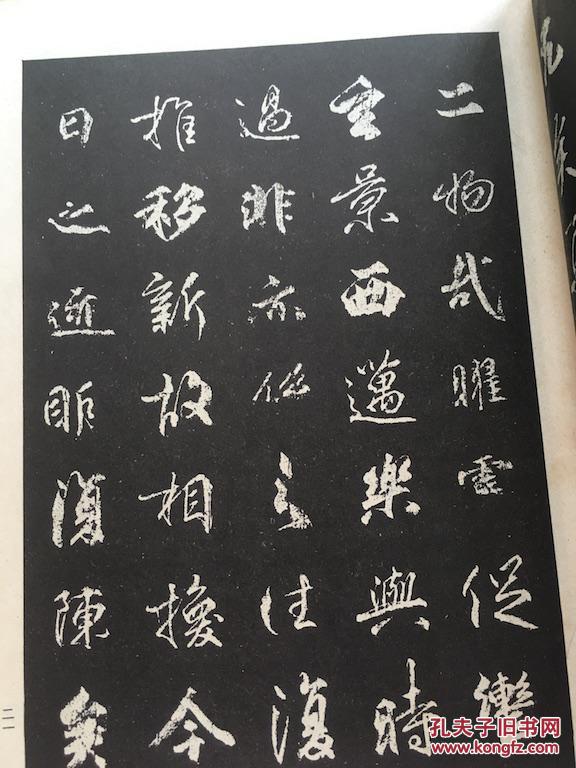 二物哉曜靈促轡
玄景西邁樂與時
過悲亦係之往復
推移新故相換今
日之迹明復陳矣
二一
孔夫子旧书网
www.kongfz.com